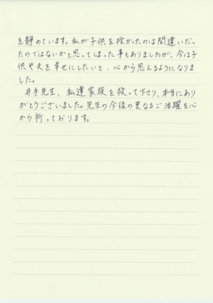 を静めています。私が子供を授かったのは間違いだっ
たのではないかと思ってしまった事もありましたが、今は子
供や夫を幸せにしたいと、心から思えるようになりまし
た。
井手先生、私達家族を救って下さり、本当にあり
がとうございました。先生の今後の更なるご活躍を心
から祈っております。